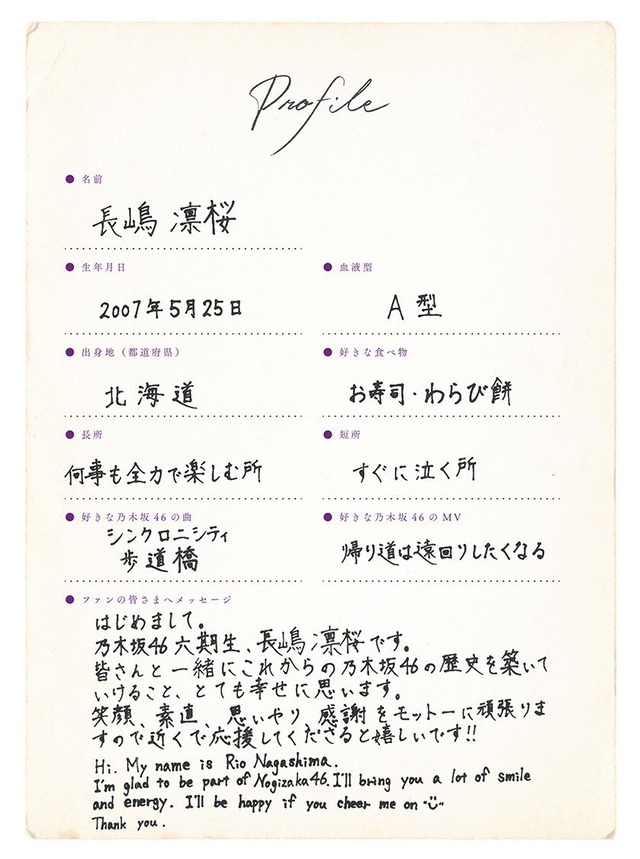 Profile
名前
長嶋 凛桜
生年月日
2007年5月25日
血液型
A 型
出身地（都道府県）
北海道
好きな食べ物
お寿司・わらび餅
長所
何事も全力で楽しむ所
短所
すぐに泣く所
好きな乃木坂46の曲
シンクロニシティ
歩道橋
好きな乃木坂46のMV
帰り道は遠回りしたくなる
ファンの皆さまへメッセージ
はじめまして。
乃木坂46 六期生、長嶋凛桜です。
皆さんと一緒にこれからの乃木坂46の歴史を築いて
いけること、とても幸せに思います。
笑顔、素直、思いやり、感謝をモットーに頑張りま
すので近くで応援してくださると嬉しいです!!
Hi. My name is Rio Nagashima.
I'm glad to be part of Nogizaka46. I'll bring you a lot of smile
and energy. I'll be happy if you cheer me on
Thank you.